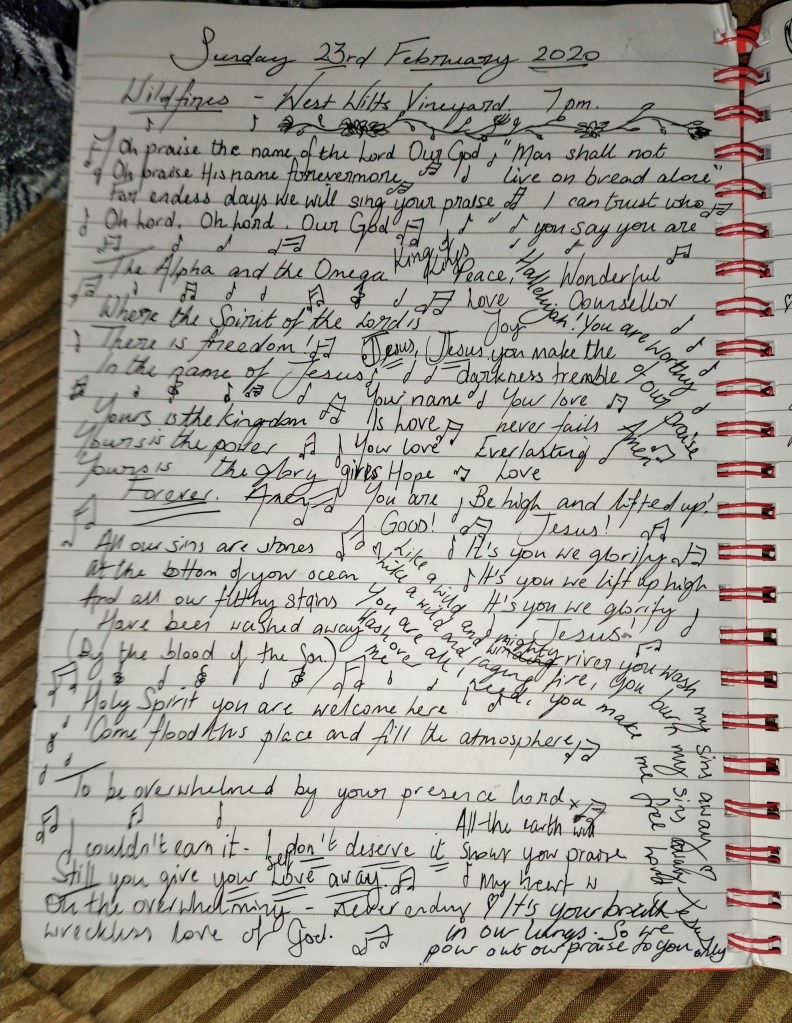 Sunday 23rd February 2020
Wildfires - West Wilts Vineyard. 7pm.
Oh praise the name of the Lord Our God
Oh praise His name forevermore
For endess days we will sing your praise
Oh Lord, Oh Lord. Our God
"Man shall not
live on bread alone"
I can trust who
you say you are
The Alpha and the Omega
King of Kings
Peace, Wonderful
Love Counsellor
Joy
Hallelujah! You are worthy of our praise
Amen
Where the Spirit of the Lord is
There is freedom!
In the name of Jesus
Jesus, Jesus you make the
darkness tremble
Your name Your love
Is Love never fails
Your love Everlasting
gives Hope Love
Yours is the kingdom
Yours is the power
Yours is the glory
Forever. Amen
You are
GOOD!
Be high and lifted up!
Jesus!
It's you we glorify
It's you we lift up high
It's you we glorify
Jesus!
All our sins are stones
at the bottom of your ocean
And all our filthy stains
Have been washed away
(By the blood of the Son)
Like a wild
like a wild and mighty river you wash my sins away
You are wind and raging fire, you burn my sins
Wash over all I need, you make me free Lord
me
Holy Spirit you are welcome here
Come flood this place and fill the atmosphere
To be overwhelmed by your presence Lord x
I couldn't earn it - I don't deserve it
Still you give yourself Love away.
Oh the overwhelming - Never ending
wreckless love of God.
All the earth will
Shout your praise
My heart w
It's your breath
in our lungs. So we
pour out our praise to you only